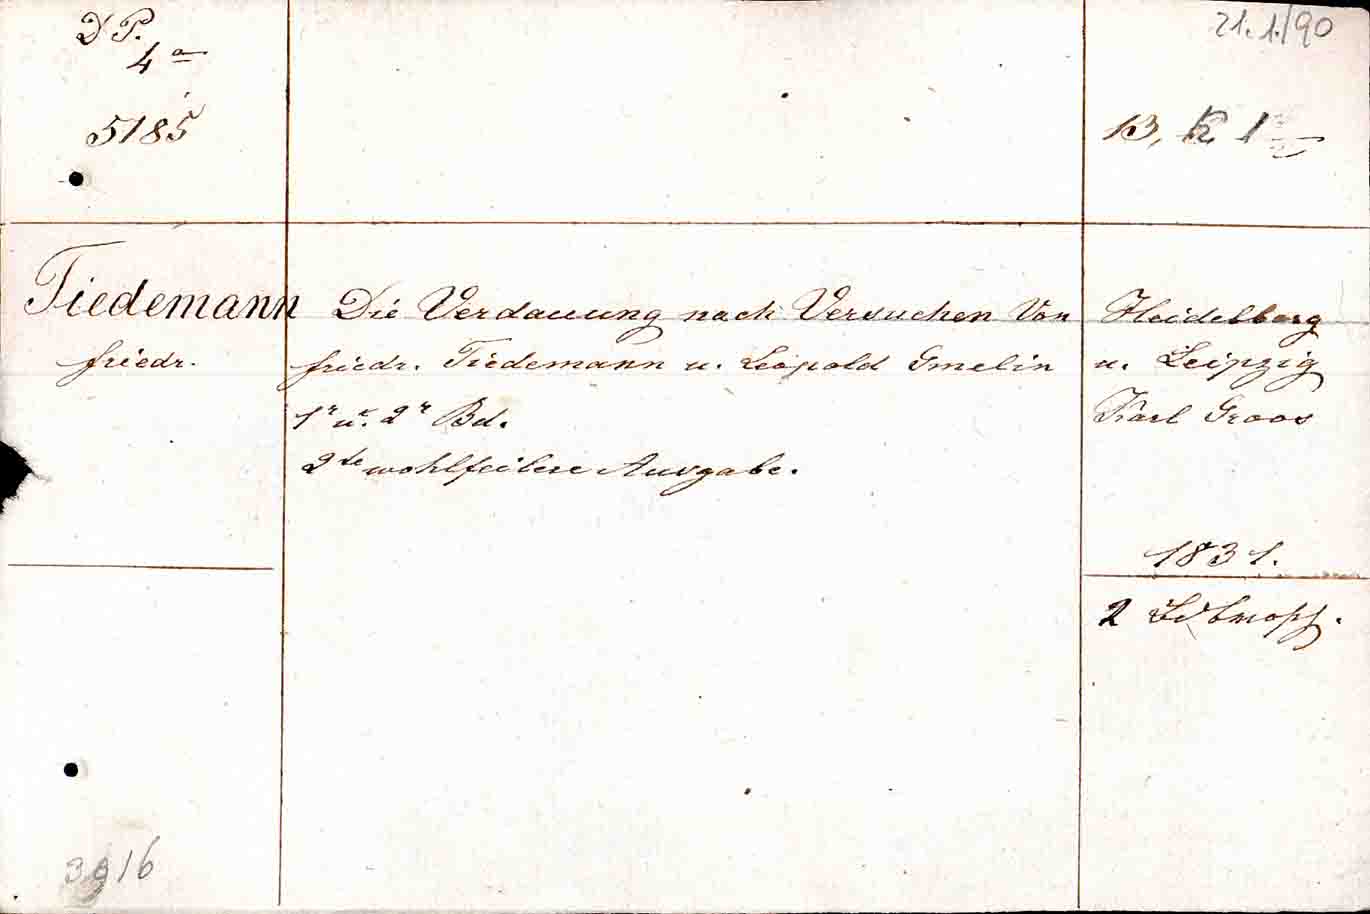 D P.
4a
5185
21.1./90
13,
Tiedemann
friedr.
Die Verdauung nach Versuchen Von
friedr. Tiedemann u. Leopold Gmelin
1r u. 2r Bd.
2te wohlfeilere Ausgabe.
Heidelberg
u. Leipzig
Karl Groos
1831.
2
3916